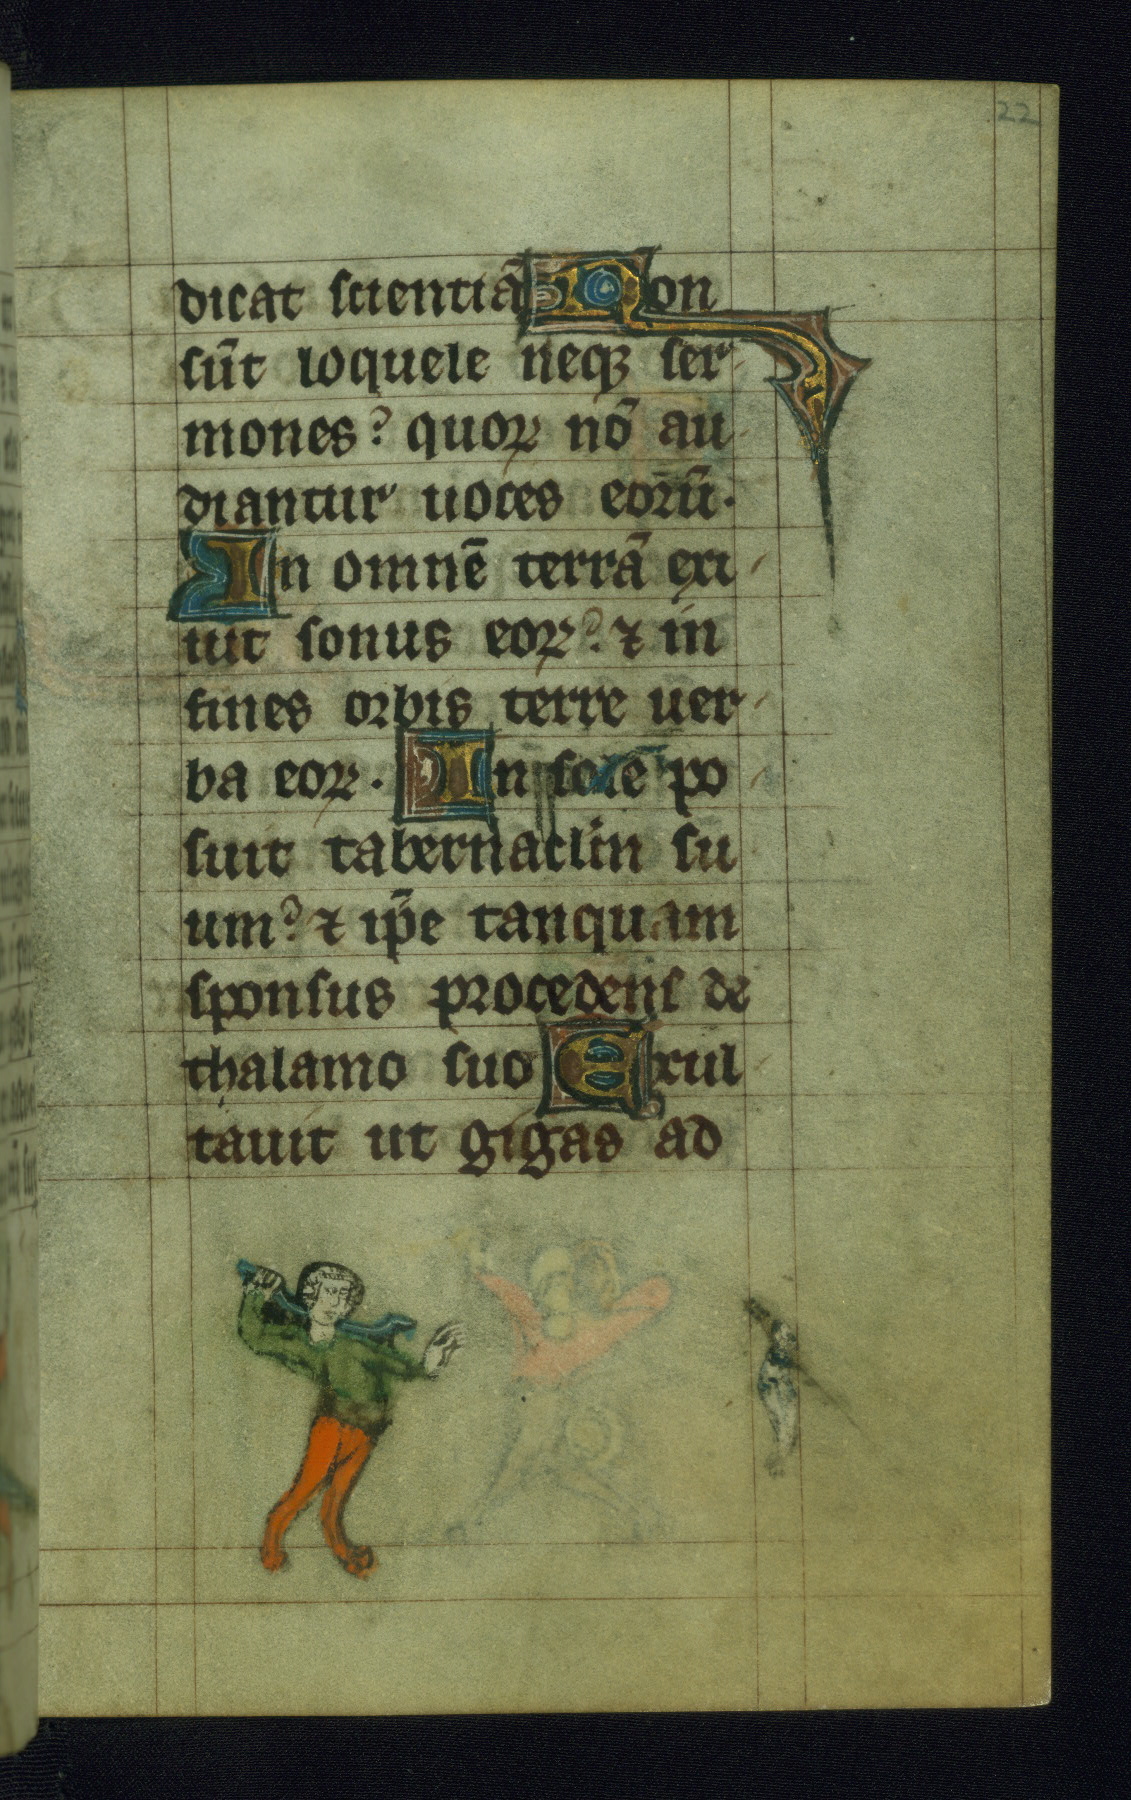 22
dicat scientiā Non
sūt loquele neqꝫ ser
mones? quoꝝ nō au
diantur uoces eorū.
In omnē terrā exi
uit sonus eoꝝ? ⁊ in
fines orbis terre uer
ba eoꝝ. In sole po
suit tabernaclm̄ su
um? ⁊ ip̄e tanquam
sponsus procedens de
thalamo suo Exul
tauit ut gigas ad